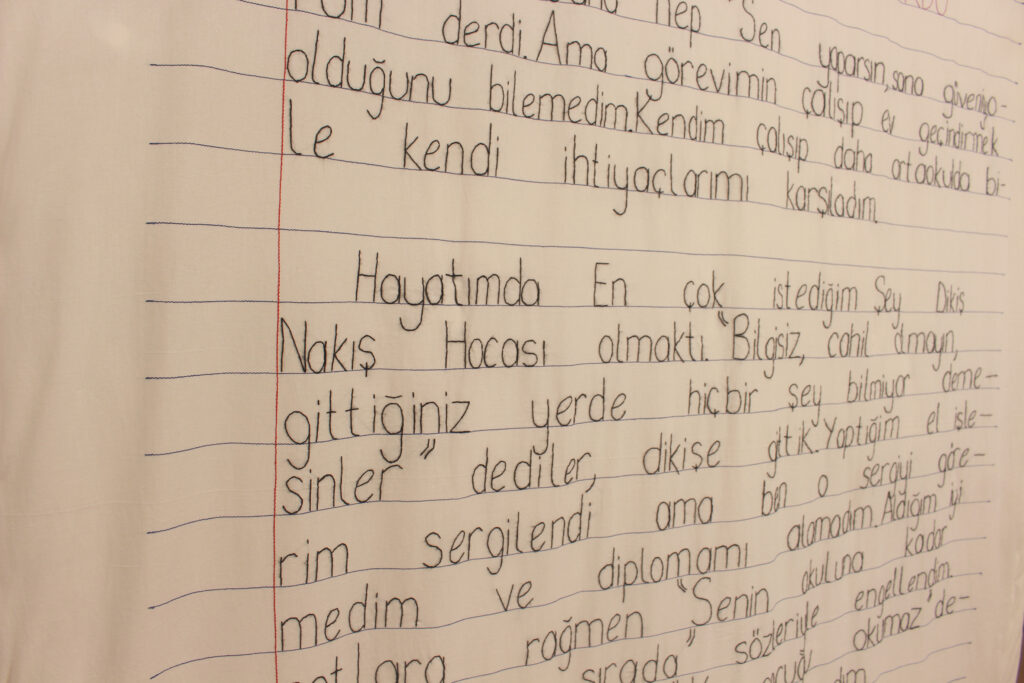 hep "Sen yaparsın, sana güveniyo-
rum derdi. Ama görevimin çalışıp ev geçindirmek
olduğunu bilemedim. Kendim çalışıp daha ortaokulda bi-
le kendi ihtiyaçlarımı karşıladım.
Hayatımda En çok istediğim Şey Dikiş
Nakış Hocası olmaktı. "Bilgisiz, cahil olmayın,
gittiğiniz yerde hiçbir şey bilmiyor deme-
sinler" dediler, dikişe gittik. Yaptığım el işle-
rim sergilendi ama ben o sergiyi göre-
medim ve diplomamı alamadım. Aldığım iyi
notlara rağmen "Senin okuluna kadar
sırada" sözleriyle engellendim.
okumaz "de-